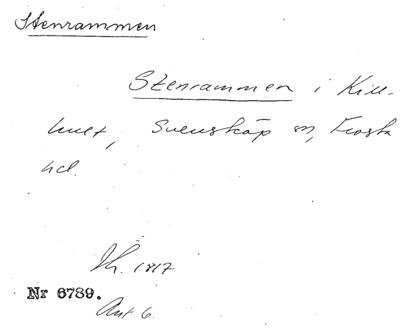 Stenrammen
Stenrammen i Kill-
hult, Svenskäp sn, Frosta
hd.
Kh. 1817
Nr 6789.
Ant 6.